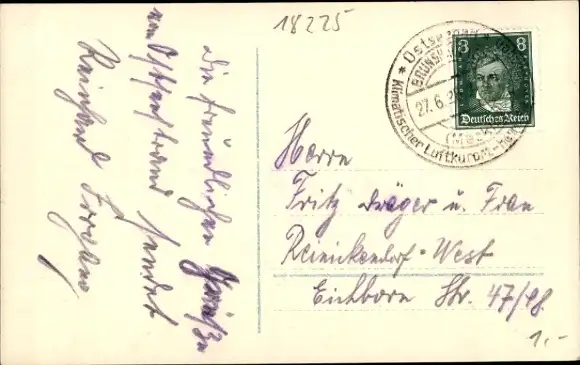 18225
Die freundlichen Grüße
vom Ostseestrand sendet
Ostsee
BRUNSH
27.6.2
(Meck
* Klimatischer Luftkurort
8 8
Deutsches Reich
Herrn
Fritz Dräger u. Frau
Reinickendorf-West
Eichborn Str. 47/48.
1.-